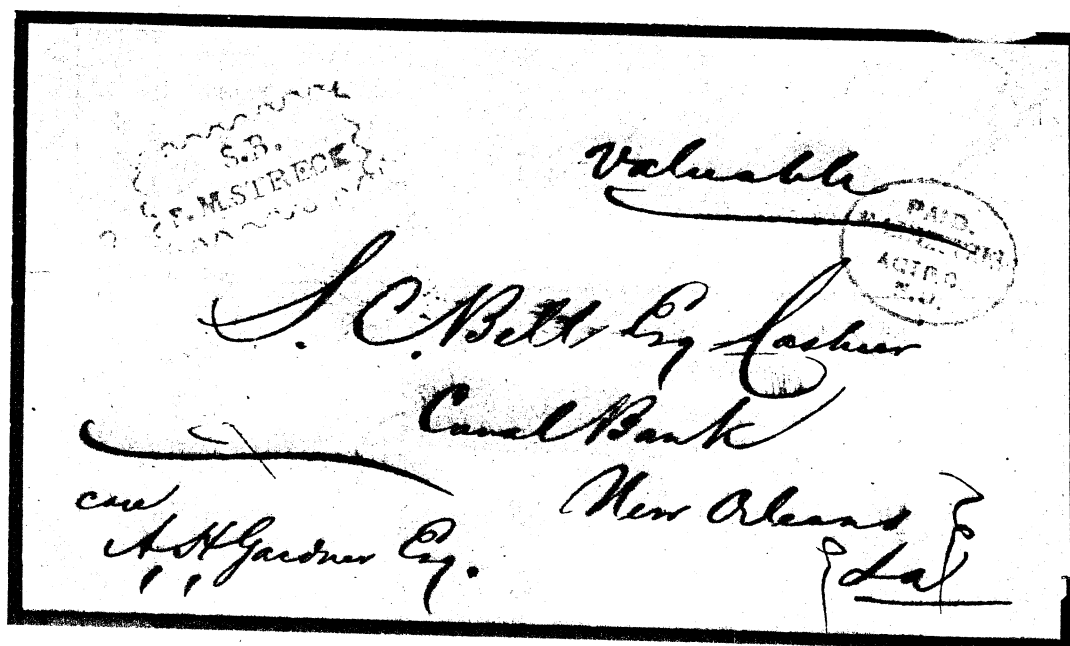 S.B.
F. M. STRECK
Valuable
PAID.
N.O.
S. C. Bell Esq Cashier
Canal Bank
New Orleans
La
care
A. H. Gardner Esq.